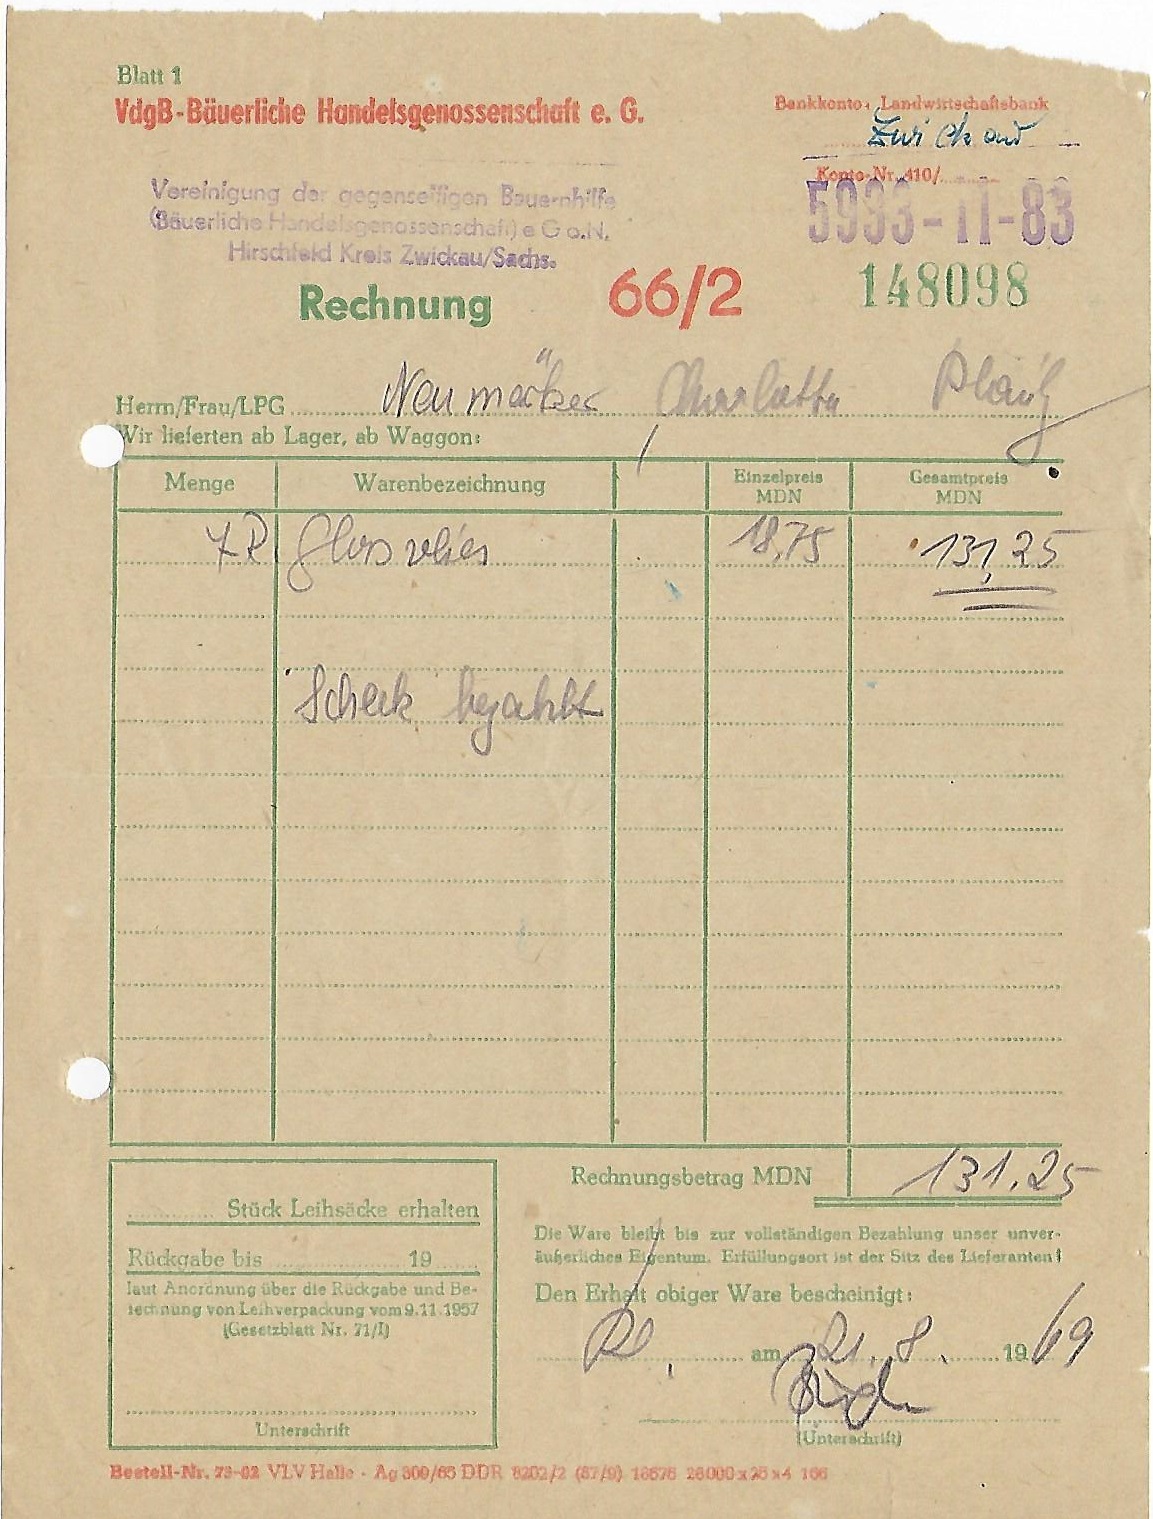 Blatt 1
VdgB-Bäuerliche Handelsgenossenschaft e. G.
Bankkonto: Landwirtschaftsbank
Zwickau
Konto-Nr. 410/
5933-11-83
Vereinigung der gegenseitigen Bauernhilfe
(Bäuerliche Handelsgenossenschaft) e G o.N.
Hirschfeld Kreis Zwickau/Sachs.
Rechnung 66/2 148098
Herrn/Frau/LPG Neumärker, Charlotte
Wir lieferten ab Lager, ab Waggon:
Menge Warenbezeichnung Einzelpreis MDN Gesamtpreis MDN
7 R Glasvlies 18,75 131,25
Scheck bezahlt
Rechnungsbetrag MDN 131.25
Stück Leihsäcke erhalten
Rückgabe bis 19
laut Anordnung über die Rückgabe und Be-
rechnung von Leihverpackung vom 9.11.1957
(Gesetzblatt Nr. 71/I)
Unterschrift
Die Ware bleibt bis zur vollständigen Bezahlung unser unver-
äußerliches Eigentum. Erfüllungsort ist der Sitz des Lieferanten!
Den Erhalt obiger Ware bescheinigt:
am 21.8. 1969
(Unterschrift)
Bestell-Nr. 73-02 VLV Halle · Ag 300/65 DDR 8202/2 (87/9) 18676 26000x25x4 166